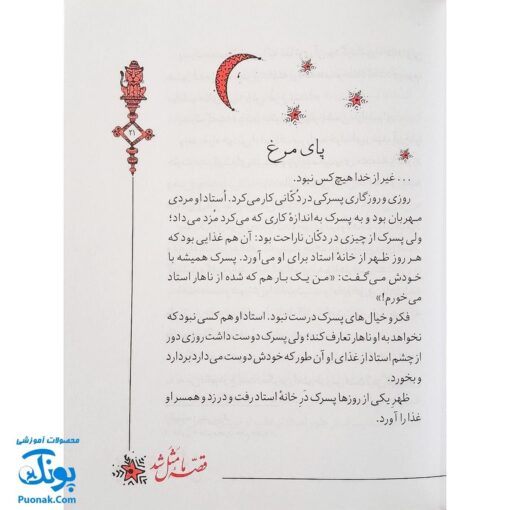 ۲۱
پای مرغ
... غیر از خدا هیچ کس نبود.
روزی و روزگاری پسرکی در دکّانی کار می‌کرد. اُستاد او مردی
مهربان بود و به پسرک به اندازهٔ کاری که می‌کرد مُزد می‌داد؛
ولی پسرک از چیزی در دکّان ناراحت بود: آن هم غذایی بود که
هر روز ظهر از خانهٔ استاد برای او می‌آورد. پسرک همیشه با
خودش می‌گفت: «من یک بار هم که شده از ناهار استاد
می‌خورم!»
فکر و خیال‌های پسرک درست نبود. استاد او هم کسی نبود که
نخواهد به او ناهار تعارف کند؛ ولی پسرک دوست داشت روزی دور
از چشم استاد از غذای او آن طور که خودش دوست می‌دارد بردارد
و بخورد.
ظهرِ یکی از روزها پسرک دَرِ خانهٔ استاد رفت و در زد و همسر او
غذا را آورد.
قصه ما مَثَل شد
محصولات آموزشی
پونک
Puonak.Com